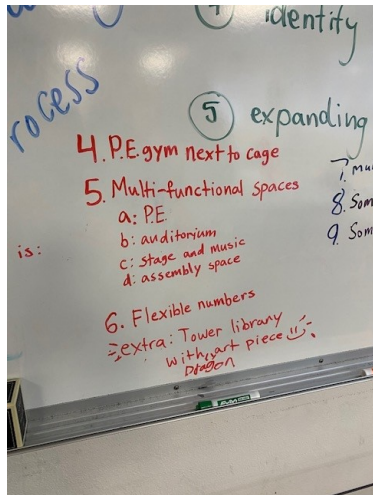 4 identity
rocess
5 expanding
4. P.E. gym next to cage
5. Multi-functional spaces
a: P.E.
b: auditorium
c: stage and music
d: assembly space
is:
6. Flexible numbers
extra: Tower library
with art piece
Dragon
7. mu
8. Som
9. Som
EXPO